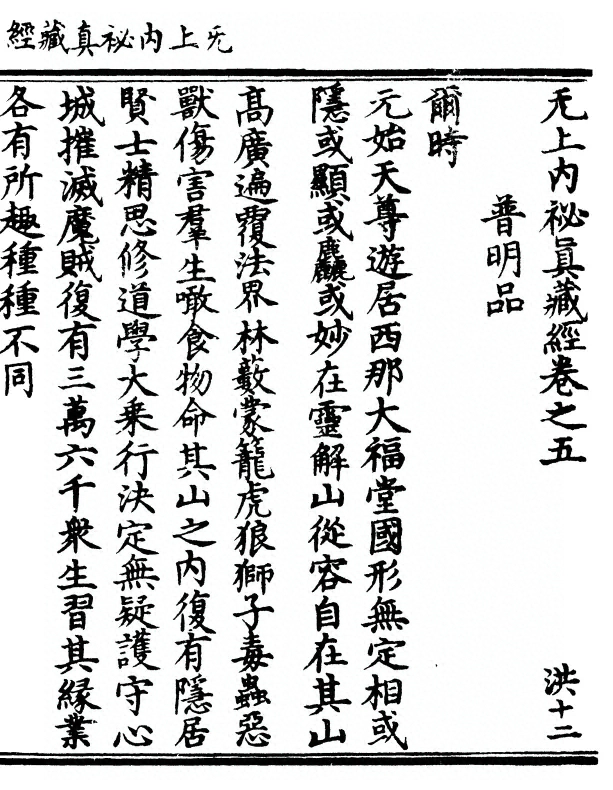 无上內祕真藏經
无上內祕眞藏經卷之五 洪十二
普明品
爾時
元始天尊遊居西那大福堂國形無定相或
隱或顯或麤或妙在靈解山從容自在其山
高廣遍覆法界林藪蒙籠虎狼獅子毒蟲惡
獸傷害羣生噉食物命其山之內復有隱居
賢士精思修道學大乘行決定無疑護守心
城摧滅魔賊復有三萬六千衆生習其緣業
各有所趣種種不同